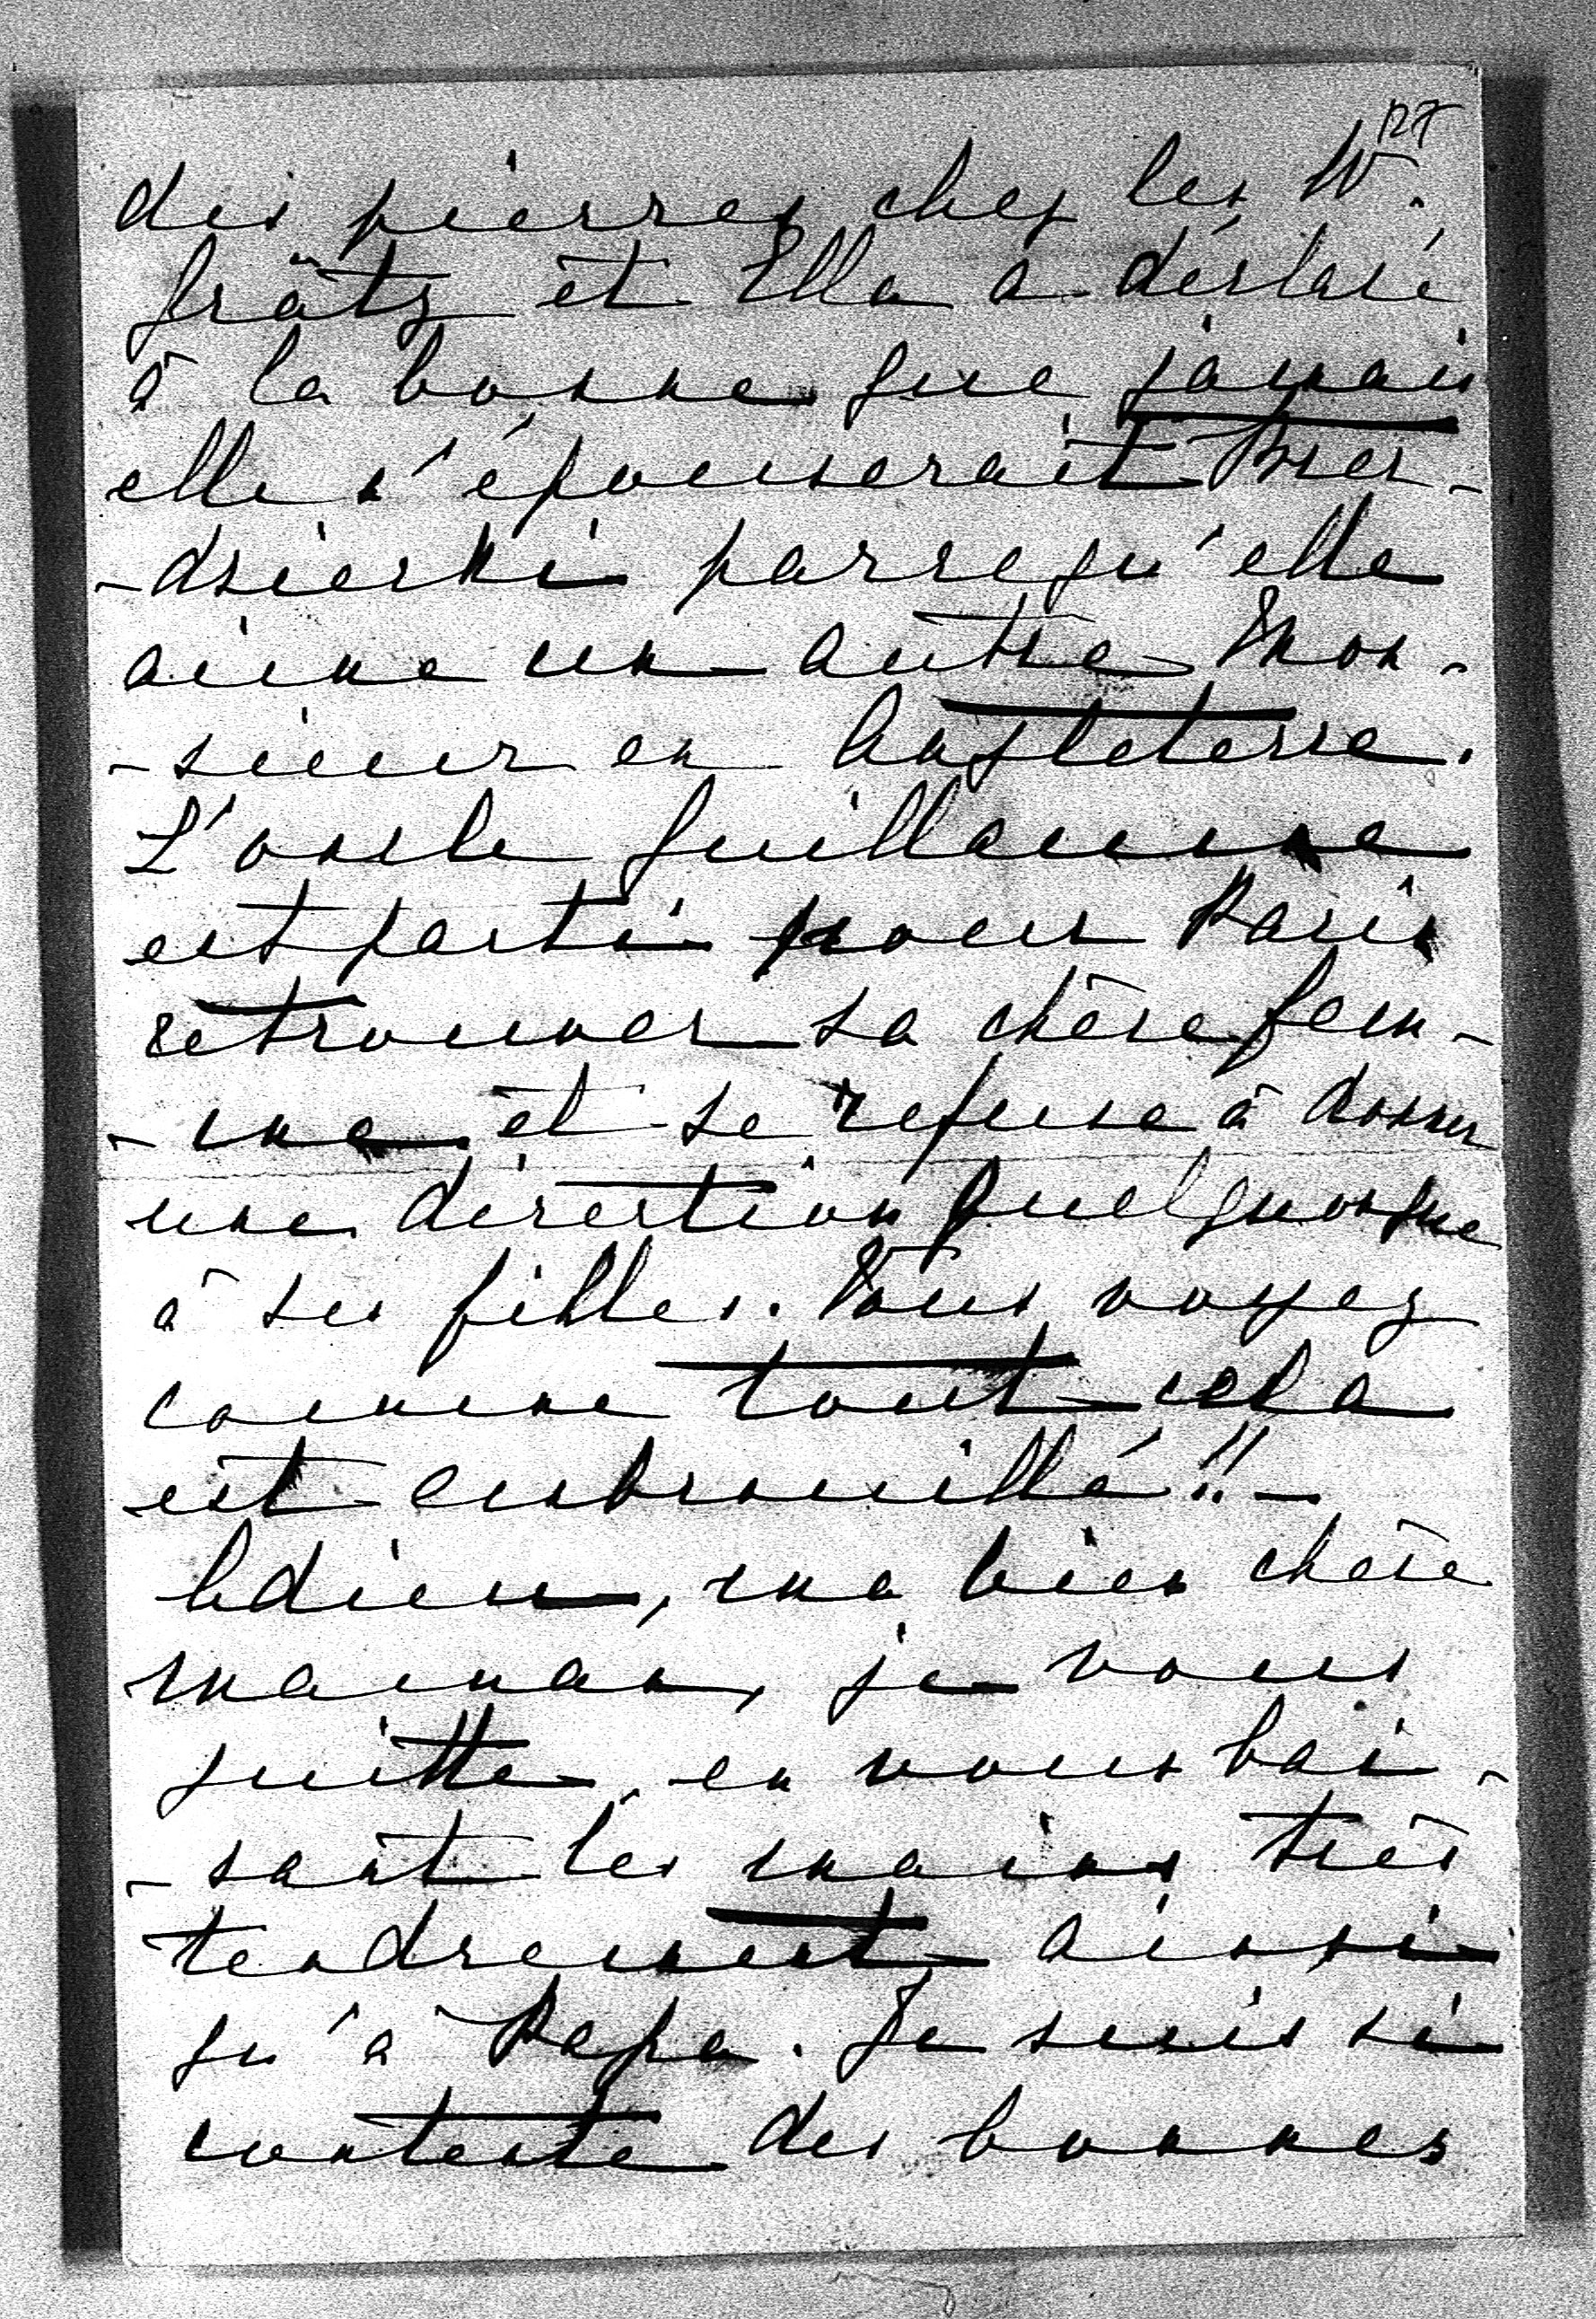 127
des pierres chez les W.
Grätz et Ella a déclaré
à la bonne que jamais
elle n'épouserait Bier-
-dzierski parcequ'elle
aime un autre Mon-
-sieur en Angleterre.
L'oncle Guillaume
est parti pour Paris
retrouver sa chère fem-
-me et se refuse à donner
une direction quelquonque
à ses filles. Vous voyez
comme tout cela
est embrouillé!! -
Adieu, ma bien chère
maman, je vous
quitte en vous bai-
-sant les mains très
tendrement ainsi
qu'à Papa. Je suis si
contente des bonnes